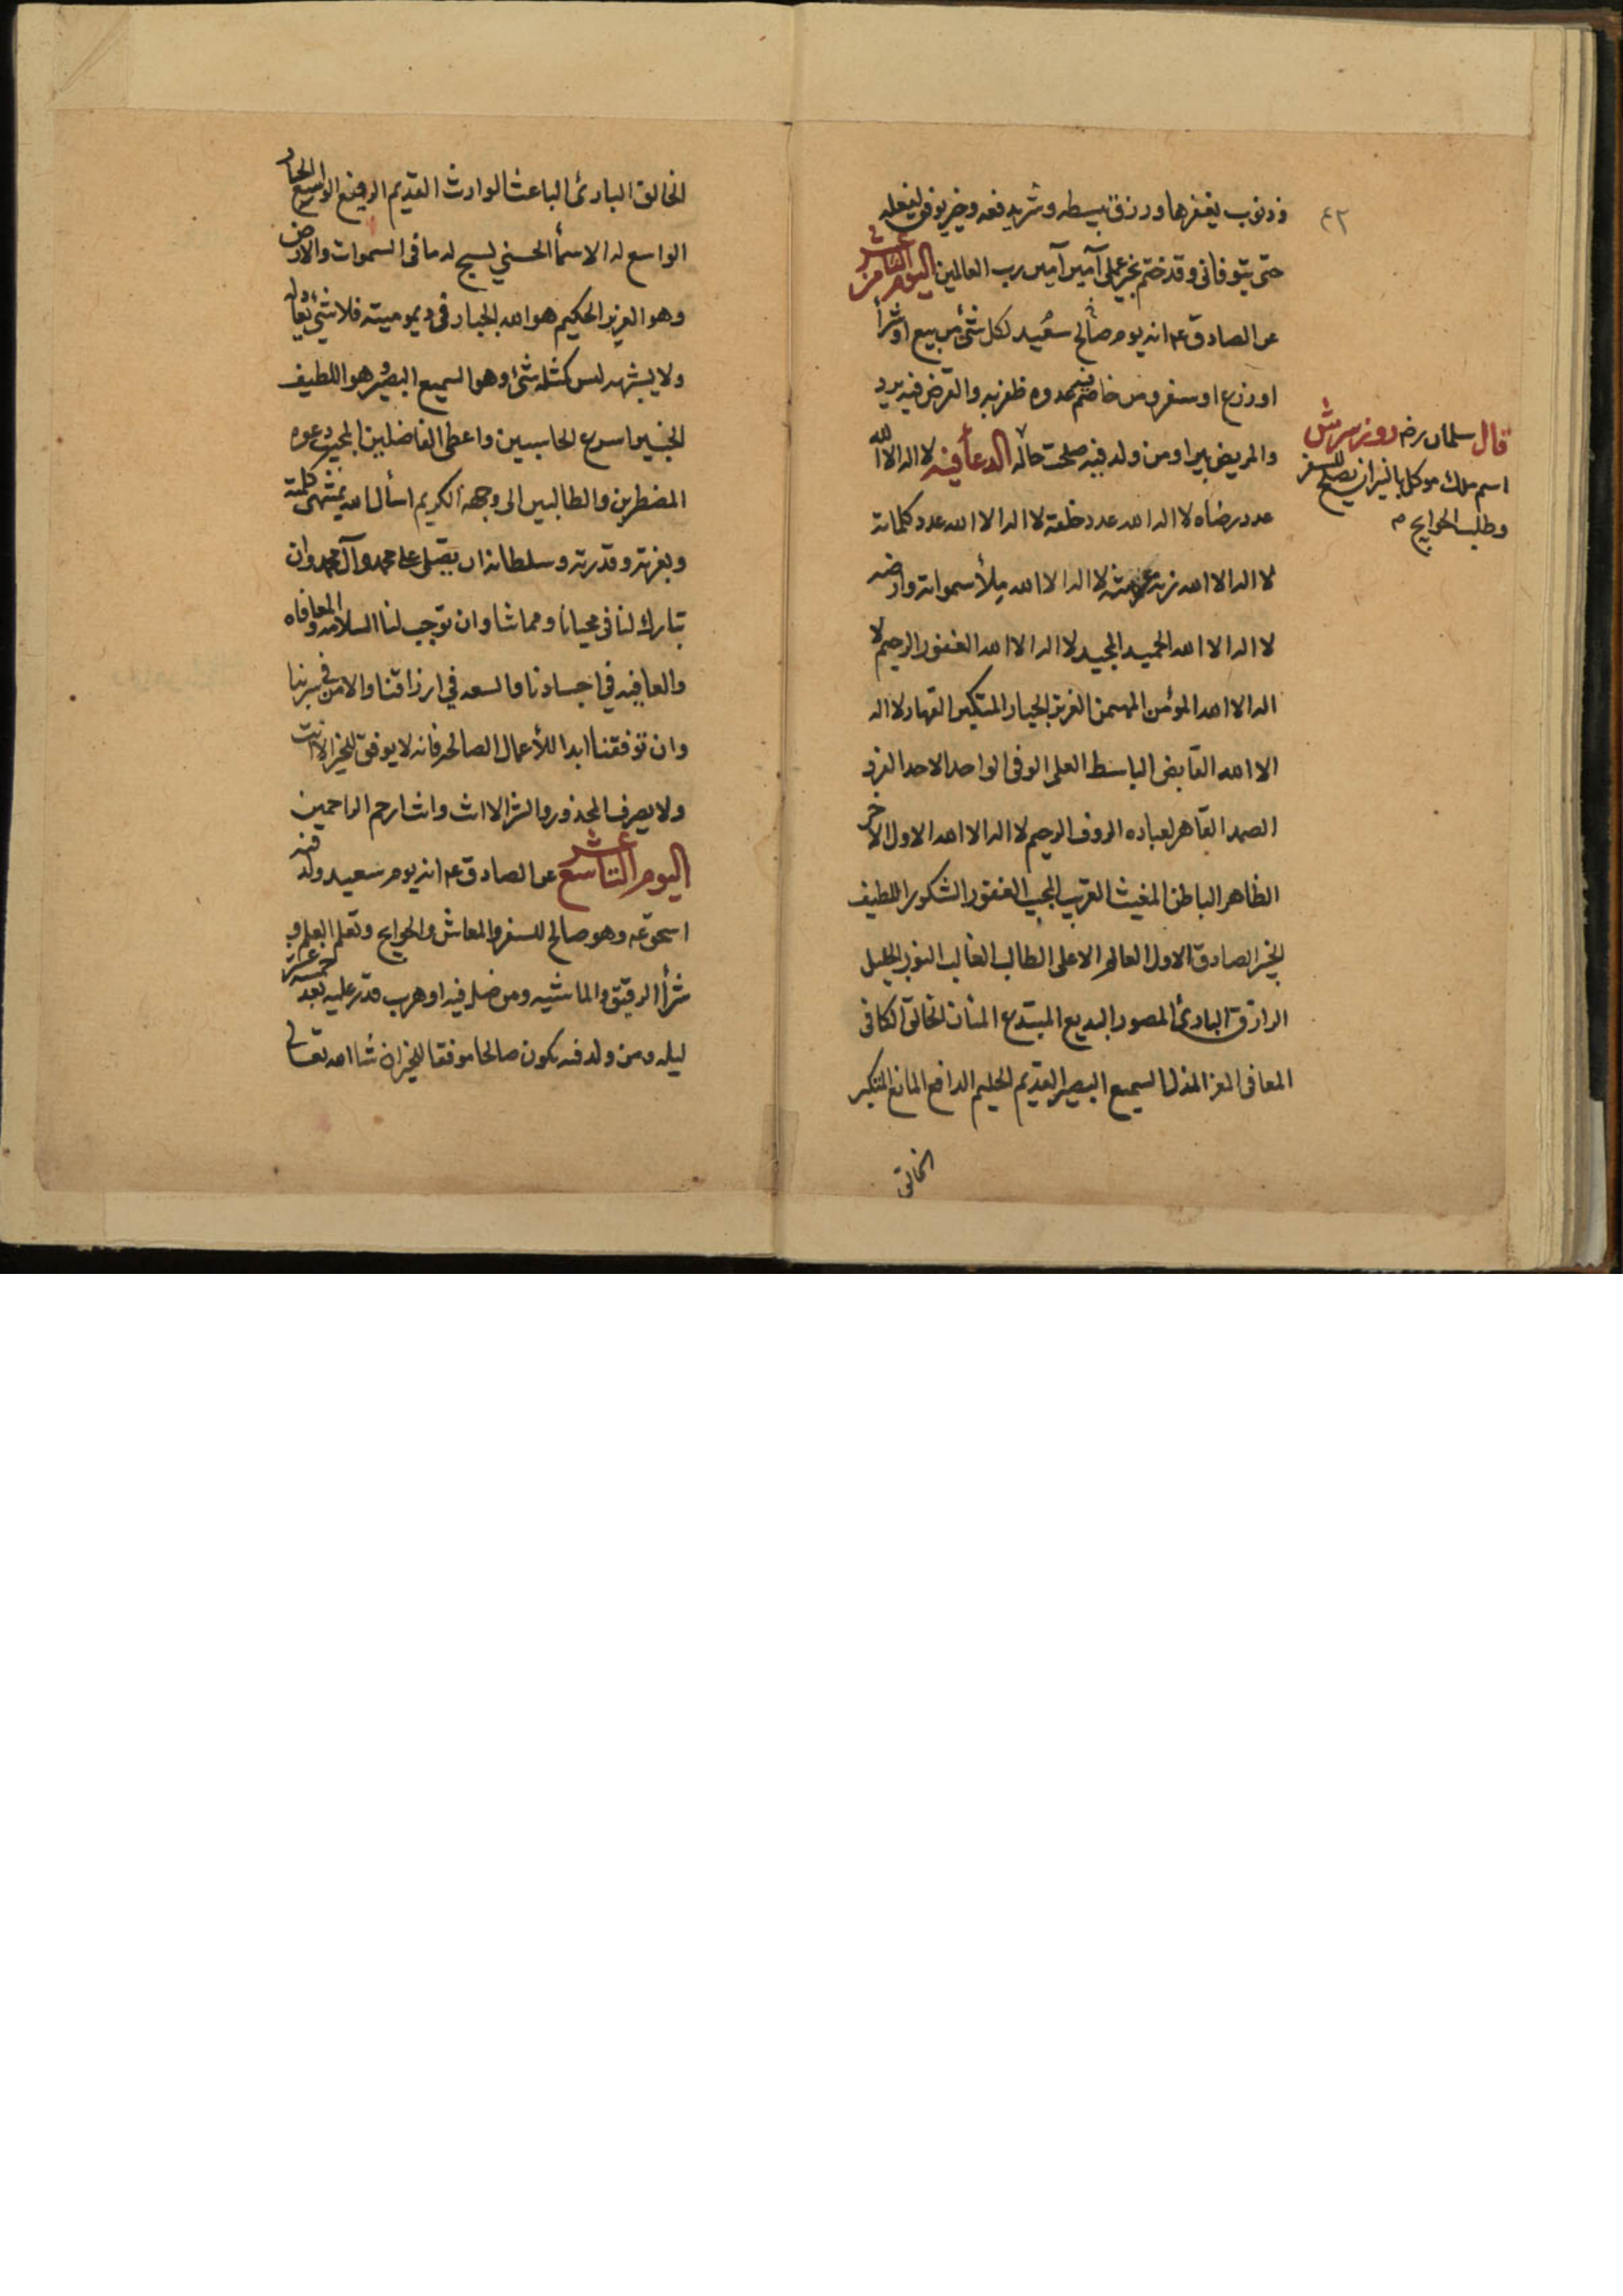 ٤٢
وذنوب يغفرها ورزق يبسطه وشر يدفعه وخير يوفق لفعله
حتى يتوفانى وقد ختم بخير عملى آمين آمين رب العالمين اليوم الثامن عشر
عن الصادق ع انه يوم صالح سعيد لكل شئ من بيع او شرأ
او زرع او سفر ومن خاصم فيه عدوه ظفر به والقرض فيه يرد
والمريض يبرا ومن ولد فيه صلحت حاله الدعأ فيه لا اله الا الله
عدد رضاه لا اله الا الله عدد خلقه لا اله الا الله عدد كلماته
لا اله الا الله زنة عرشه لا اله الا الله ملأ سمواته وارضه
لا اله الا الله الحميد المجيد لا اله الا الله الغفور الرحيم لا
اله الا الله المؤمن المهيمن العزيز الجبار المتكبر القهار لا اله
الا الله القابض الباسط العلى الوفى الواحد الاحد الفرد
الصمد القاهر لعباده الروف الرحيم لا اله الا الله الاول الاخر
الظاهر الباطن المغيث القريب المجيب الغفور الشكور اللطيف
الخبير الصادق الاول العالم الاعلى الطالب الغالب النور الجليل
الرازق البادئ المصور البديع المبتدع المنان الخالق الكافى
المعافى المعز المذل السميع البصير القديم الحليم الدافع المانع المتكبر
الخالق
قال سلمان رض روز سرش
اسم ملك موكل بالنيران يصلح للسفر
وطلب الحوايج م
الخالق البارئ الباعث الوارث القديم الرفيع الواسع الجبار
الواسع له الاسمأ الحسني يسبح له ما فى السموات والارض
وهو العزيز الحكيم هو الله الجبار فى ديموميته فلا شئ يعادله
ولا يشبهه ليس كمثله شئ وهو السميع البصير وهو اللطيف
الخبير اسرع الحاسبين واعطى الفاضلين المجيب دعوة
المضطرين والطالبين الى وجهه الكريم اسأل الله بمنتهى كلمته
وبعزته وقدرته وسلطانه ان يصلى على محمد وآل محمد وان
تبارك لنا فى محيانا ومماتنا وان توجب لنا السلامه والمعافاه
والعافيه فى اجسادنا والسعه في ارزاقنا والامن في سربنا
وان توفقنا ابدا للأعمال الصالحه فانه لا يوفق للخير الا انت
ولا يصرف المحذور والشر الا انت وانت ارحم الراحمين
اليوم التاسع عشر عن الصادق ع انه يوم سعيد ولد فيه
اسحق ع وهو صالح للسفر والمعاش والحوايج وتعلم العلم و
شرأ الرقيق والماشيه ومن ضل فيه او هرب قدر عليه بعد خمسة عشر
ليله ومن ولد فيه يكون صالحا موفقا للخير ان شا الله تعالى